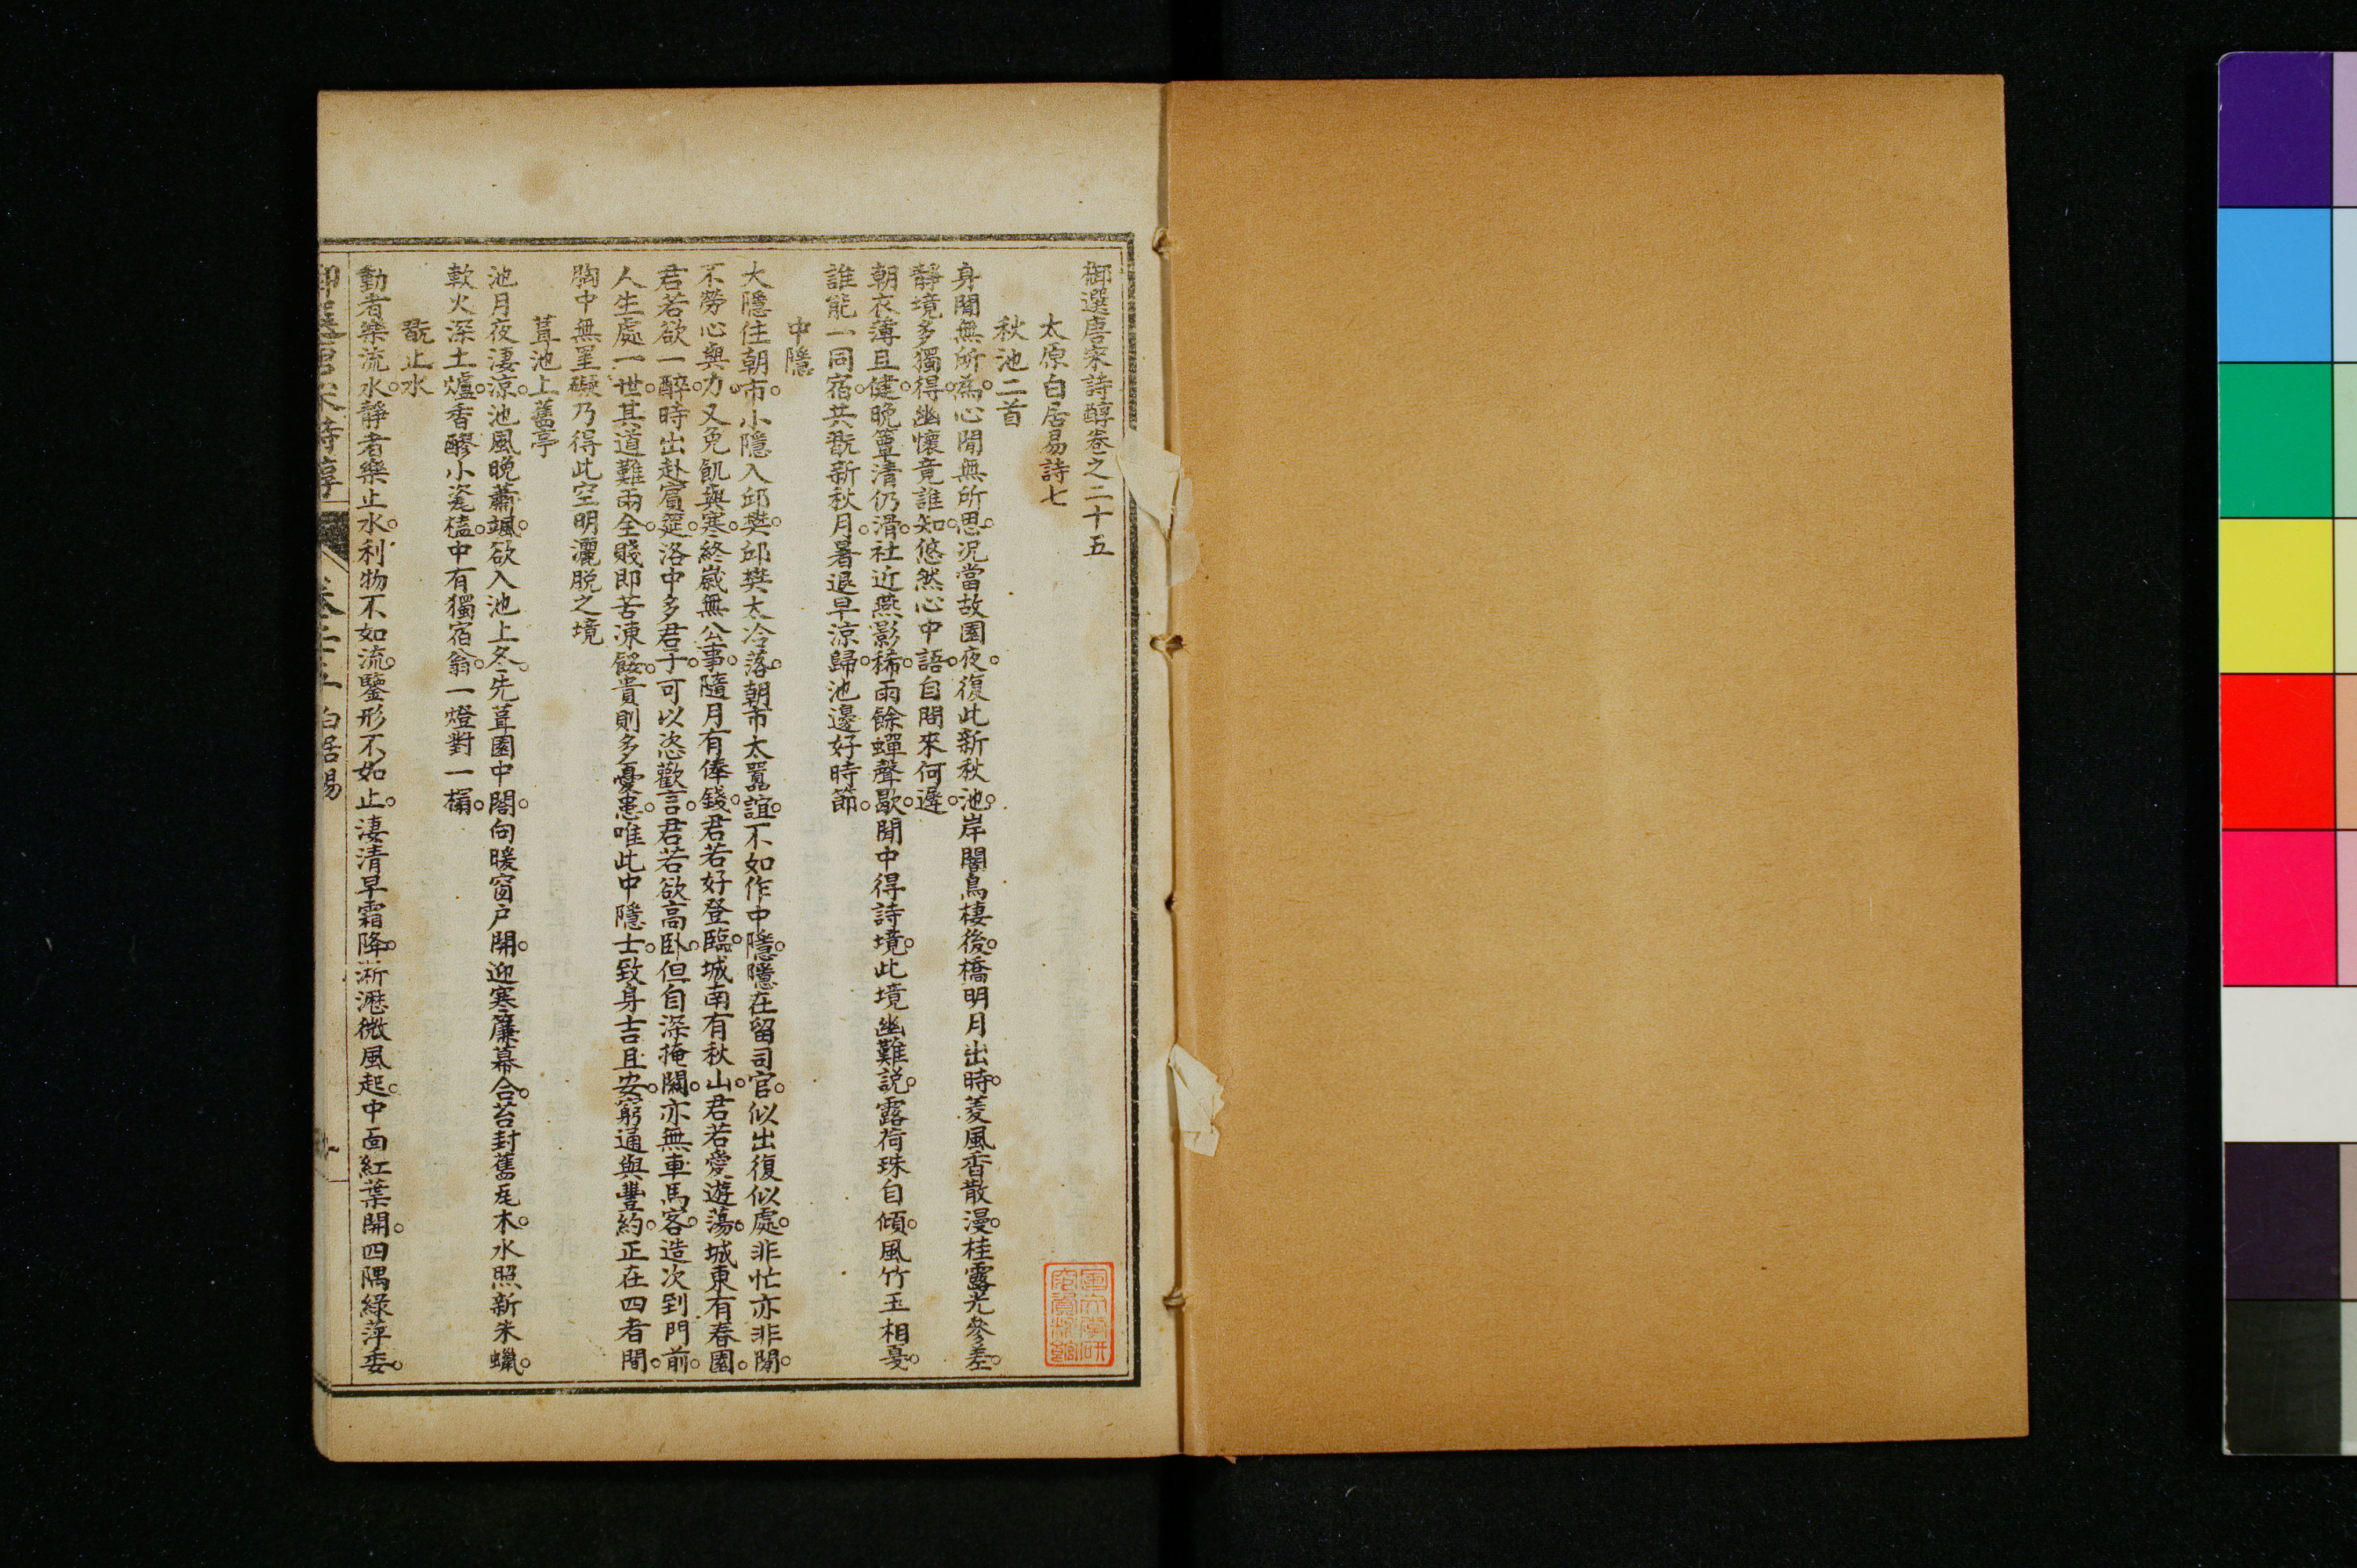 御選唐宋詩醇卷之二十五
太原白居易詩七
秋池二首
身閒無所為。心閒無所思。況當故園夜。復此新秋池。岸闇鳥棲後。橋明月出時。菱風香散漫。桂露光參差。
靜境多獨得。幽懷竟誰知。悠然心中語。自問來何遲。
朝衣薄且健。晚簟清仍滑。社近燕影稀。雨餘蟬聲歇。閒中得詩境。此境幽難說。露荷珠自傾。風竹玉相戛。
誰能一同宿。共翫新秋月。暑退早涼歸。池邊好時節。
中隱
大隱住朝市。小隱入邱樊。邱樊太冷落。朝市太囂諠。不如作中隱。隱在留司官。似出復似處。非忙亦非閒。
不勞心與力。又免飢與寒。終歲無公事。隨月有俸錢。君若好登臨。城南有秋山。君若愛遊蕩。城東有春園。
君若欲一醉。時出赴賓筵。洛中多君子。可以恣歡言。君若欲高臥。但自深掩關。亦無車馬客。造次到門前。
人生處一世。其道難兩全。賤即苦凍餒。貴則多憂患。唯此中隱士。致身吉且安。窮通與豐約。正在四者間。
胸中無罣礙乃得此空明灑脫之境
葺池上舊亭
池月夜淒涼。池風曉蕭颯。欲入池上冬。先葺園中閤。向暖窗戶開。迎寒簾幕合。苔封舊瓦木。水照新朱蠟。
軟火深土爐。香醪小瓷榼。中有獨宿翁。一燈對一榻。
翫止水
動者樂流水。靜者樂止水。利物不如流。鑒形不如止。淒清早霜降。淅瀝微風起。中面紅葉開。四隅綠萍委。
御選唐宋詩醇 卷二十五 白居易